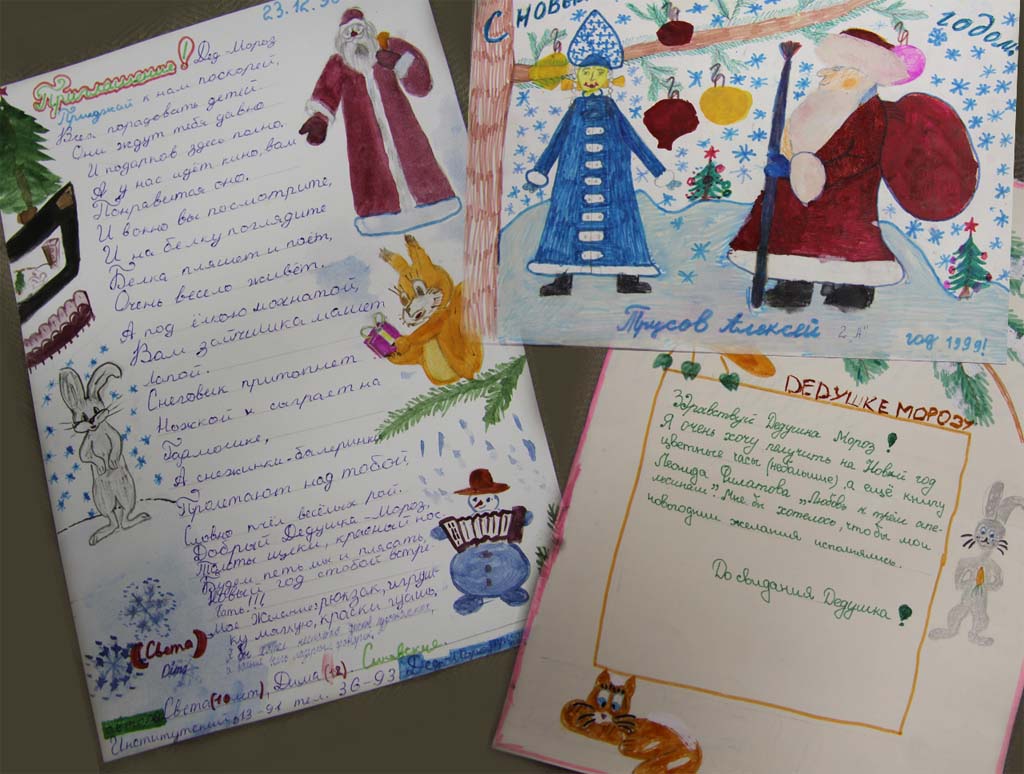 23.12.98
Приглашение! Дед-Мороз
Приезжай к нам поскорей,
Всех порадовать детей
Они ждут тебя давно
И подарков здесь полно.
А у нас идёт кино, вам
Понравится оно.
И в окно вы посмотрите,
И на белку поглядите
Белка пляшет и поёт,
Очень весело живёт,
А под ёлкою мохнатой,
Вам зайчишка машет
лапой.
Снеговик притопнет
Ножкой и сыграет на
Гармошке,
А снежинки-балеринки
Пролетают над тобой,
Словно пчёл весёлых рой.
Добрый Дедушка-Мороз,
Толсты щёки, красный нос
Будем петь мы и плясать,
Новый год с тобой встре-
чать!!!
Мое желание: рюкзак, игруш-
ку мягкую, краски гуашь,
(Света)
Дима
Света (10 лет), Дима (12). Синовские.
Институтский 13-91 тел. 36-93
С НОВЫМ
ГОДОМ!
Трусов Алексей 2 "А"
год 1999!
ДЕДУШКЕ МОРОЗУ
Здравствуй Дедушка Мороз!
Я очень хочу получить на Новый год
цветные часы (небольшие), а ещё книгу
Леонида Филатова „Любовь к трём апе-
льсинам". Мне бы хотелось, чтобы мои
новогодние желания исполнились.
До свидания Дедушка!